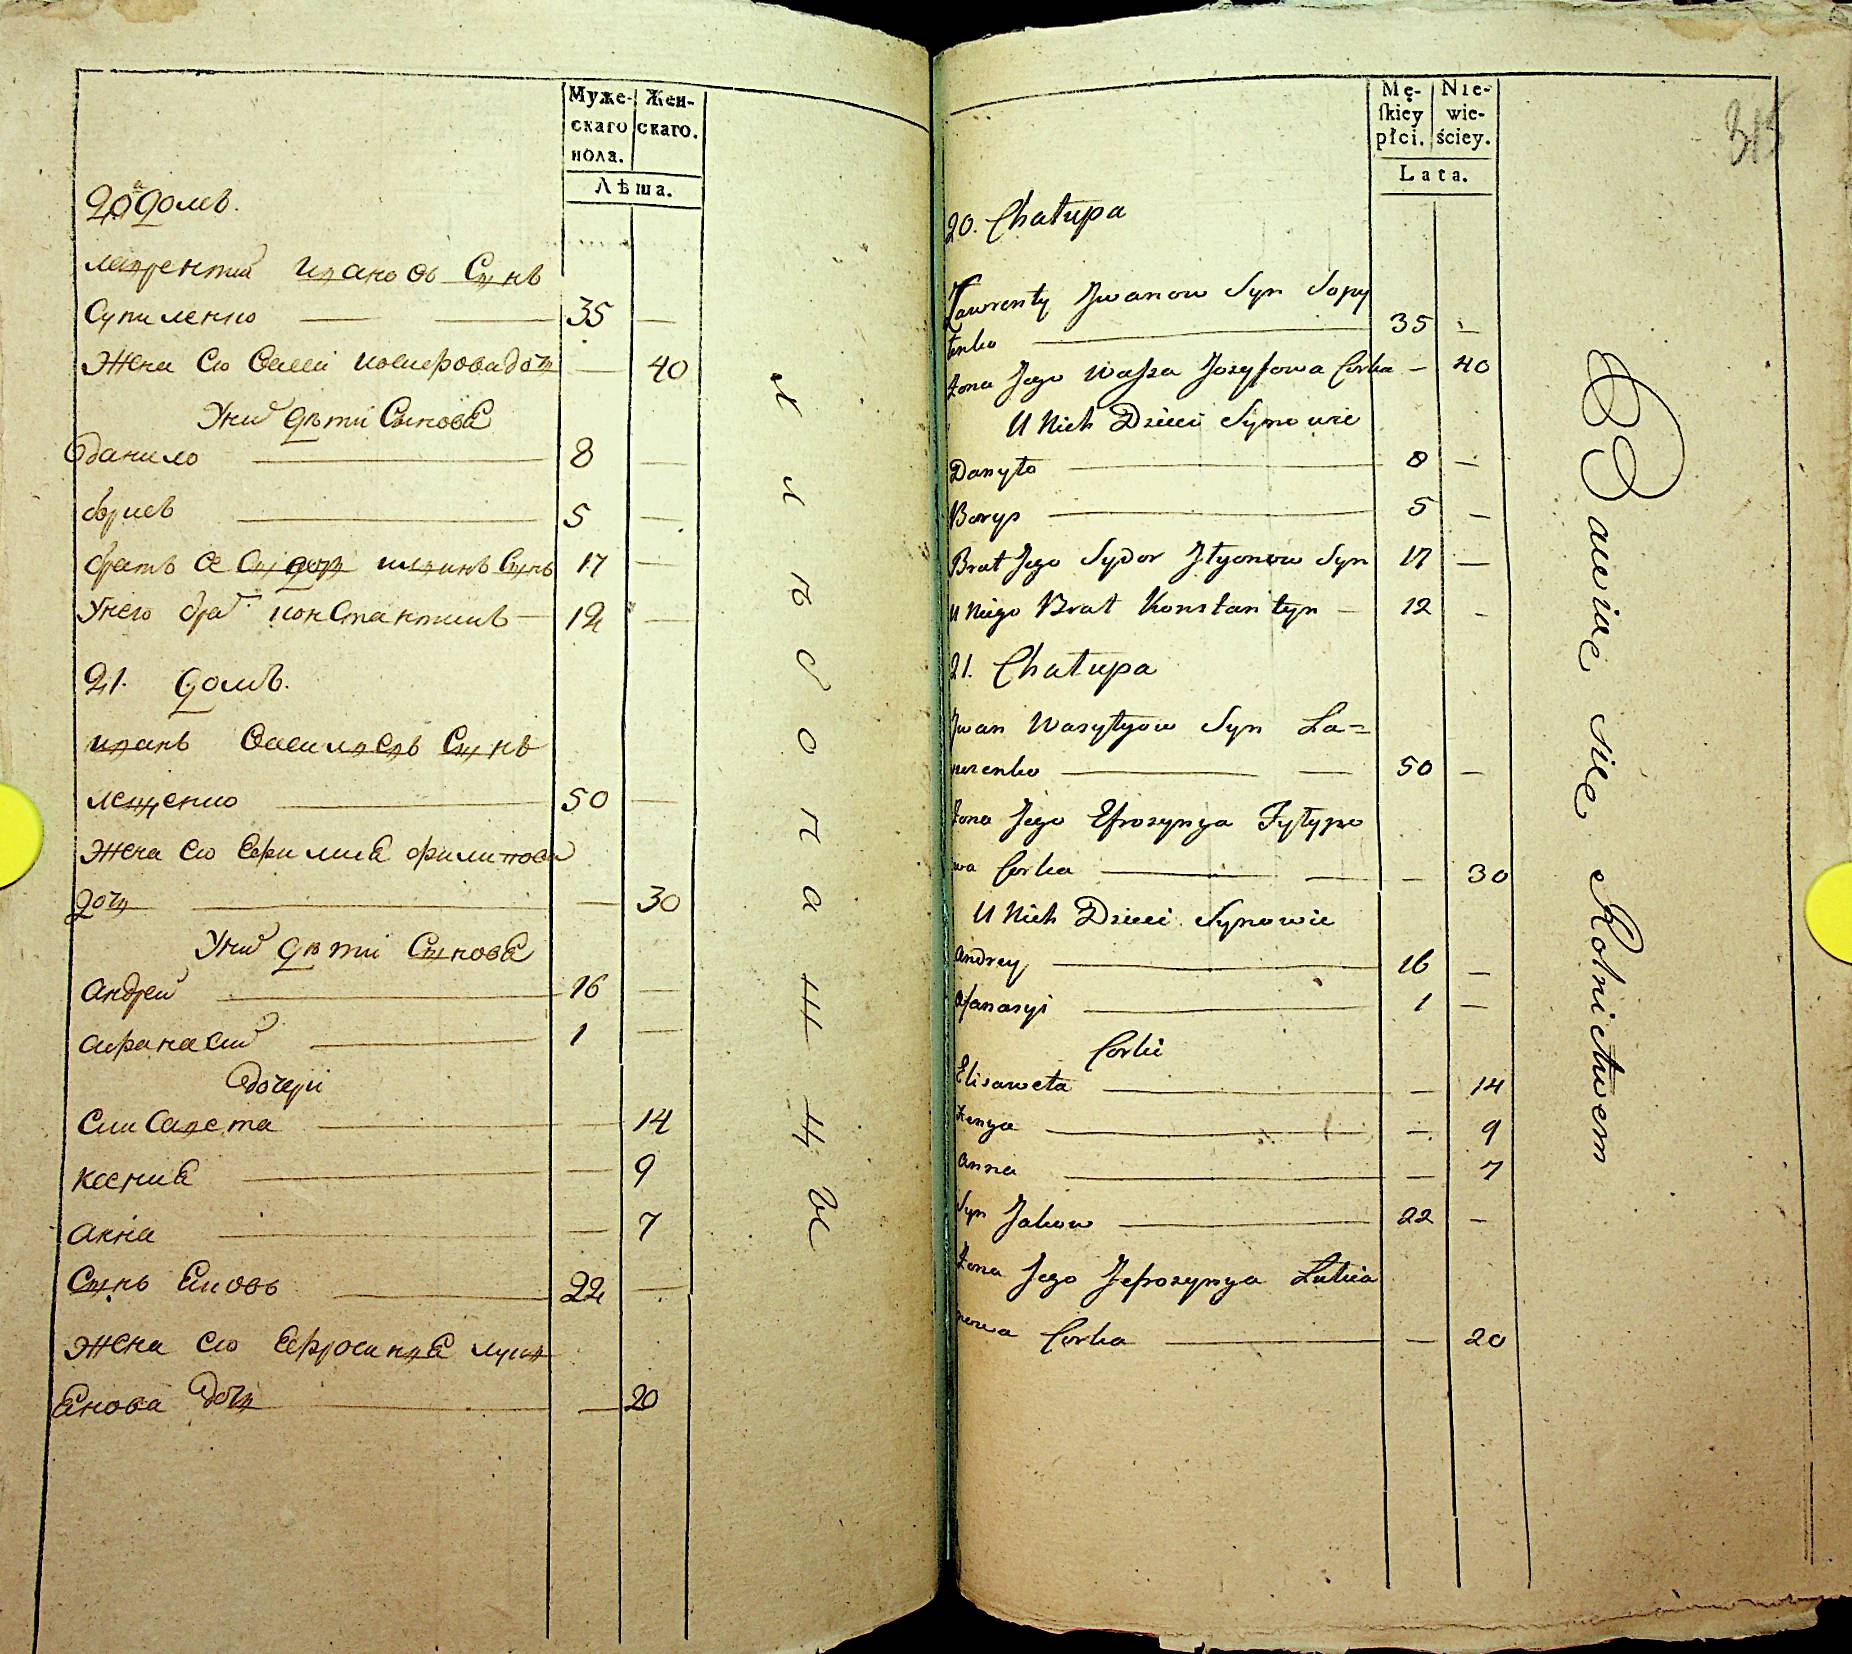 Муже- Жен-
скаго скаго.
пола.
Лѣта.
20й домъ.
лаврентий Ивановъ Сынъ
35 —
Жена его 40
У них дѣти Сыновѣ
данило 8 —
борисъ 5 —
братъ его Сидоръ Сынъ 17 —
У него бра константинъ — 12 —
21. домъ.
иванъ василиевъ Сынъ
50 —
Жена его филипова
дочь — 30
У них дѣти Сыновѣ
Андрей 16 —
афанасий 1 —
дочери
елисавета — 14
ксениѣ — 9
анна — 7
Сынъ Яковъ 22 —
Жена его ефросиниѣ луки
Янова дочь — 20
хлѣбопашцы
Mę- Nie-
ſkiey wie-
płci. ściey.
Lata.
315
20. Chałupa
Ławrenty Iwanow Syn Sopy
łenko 35 —
żona Jego Waſsa Jozyfowa Corka — 40
U Nich Dzieci Synowie
Danyło 8 —
Borys 5 —
Brat Jego Sydor Syn 17 —
U Niego Brat Konstantyn — 12 —
21. Chałupa
Iwan Wasylyow Syn La=
50 —
żona Jego Efrozynya Fyłypo
wa Corka — 30
U Nich Dzieci Synowie
Andrey 16 —
Afanasyi 1 —
Corki
Elisaweta — 14
Xenya — 9
Anna — 7
Syn Jakow 22 —
żona Jego Jefrozynya Łukia
nowa Corka — 20
Bawiąc się Rolnictwem